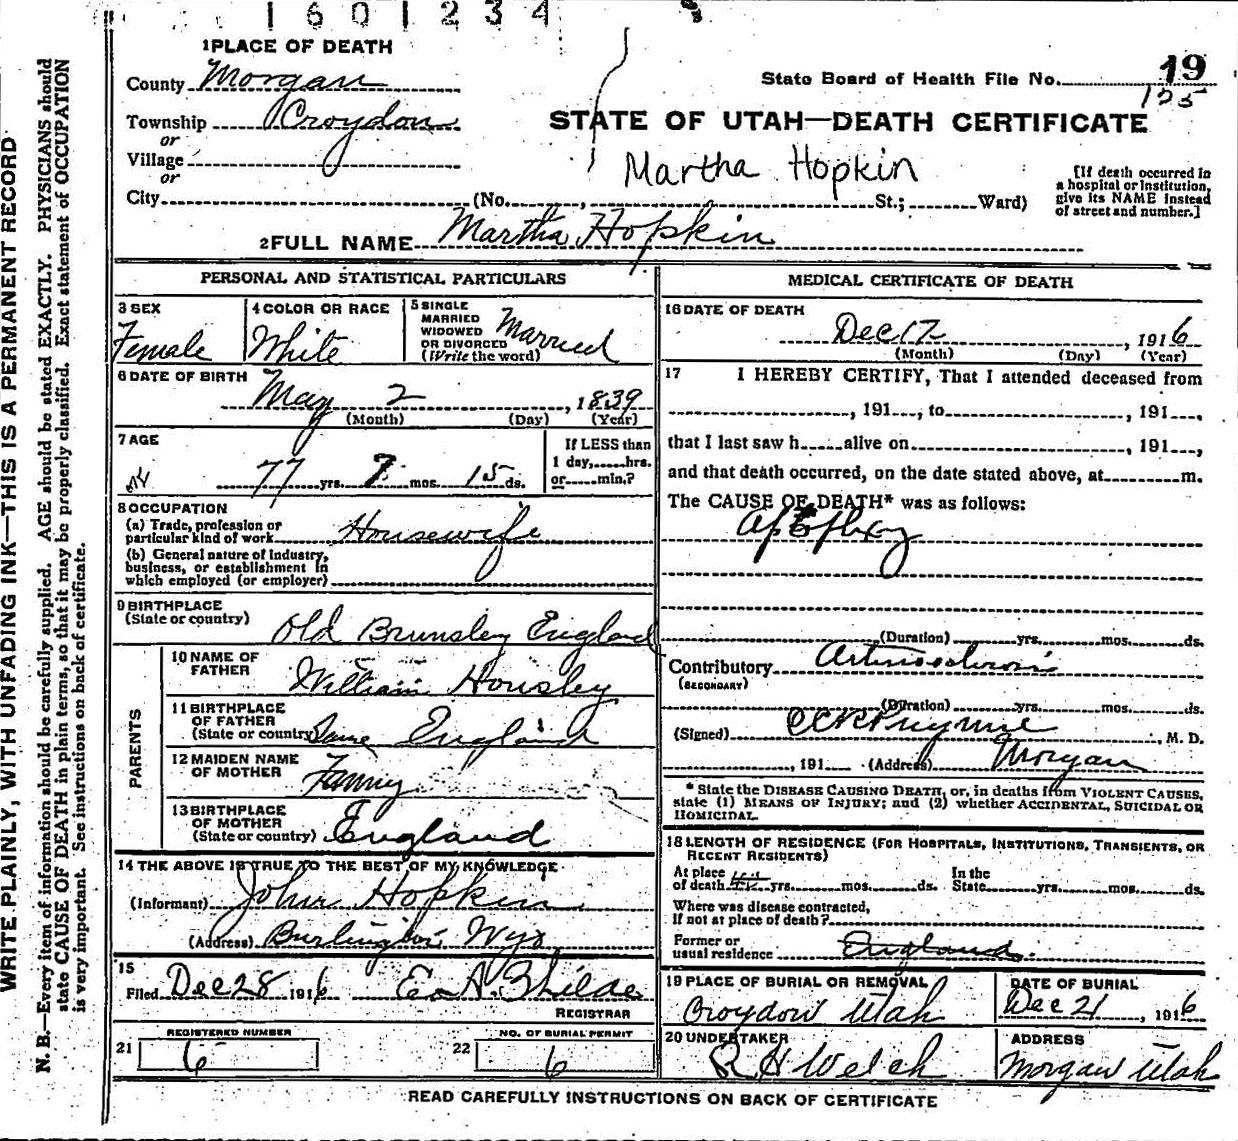 1601234
1 PLACE OF DEATH
County Morgan
State Board of Health File No. 19
125
Township Croydon
or
Village
or
STATE OF UTAH—DEATH CERTIFICATE
Martha Hopkin
[If death occurred in
a hospital or institution,
give its NAME instead
of street and number.]
City (No. , St.; Ward)
2 FULL NAME Martha Hopkin
PERSONAL AND STATISTICAL PARTICULARS
3 SEX
Female
4 COLOR OR RACE
White
5 SINGLE
MARRIED
WIDOWED
OR DIVORCED
(Write the word)
Married
6 DATE OF BIRTH
May 2, 1839
(Month) (Day) (Year)
7 AGE
77 yrs. 7 mos. 15 ds.
If LESS than
1 day, hrs.
or min.?
8 OCCUPATION
(a) Trade, profession or
particular kind of work Housewife
(b) General nature of Industry,
business, or establishment in
which employed (or employer)
9 BIRTHPLACE
(State or country)
Old Brunsley England
PARENTS
10 NAME OF
FATHER
William Housley
11 BIRTHPLACE
OF FATHER
(State or country) Same England
12 MAIDEN NAME
OF MOTHER
Fanny
13 BIRTHPLACE
OF MOTHER
(State or country) England
14 THE ABOVE IS TRUE TO THE BEST OF MY KNOWLEDGE
(Informant) John Hopkin
(Address) Burlington Wyo
15
Filed Dec 28 1916
REGISTRAR
REGISTERED NUMBER
21 6
NO. OF BURIAL PERMIT
22 6
MEDICAL CERTIFICATE OF DEATH
16 DATE OF DEATH
Dec 17, 1916
(Month) (Day) (Year)
17 I HEREBY CERTIFY, That I attended deceased from
, 191 , to , 191 ,
that I last saw h alive on , 191 ,
and that death occurred, on the date stated above, at m.
The CAUSE OF DEATH* was as follows:
Apoplexy
(Duration) yrs. mos. ds.
Contributory
(SECONDARY)
(Duration) yrs. mos. ds.
(Signed) , M. D.
, 191 (Address) Morgan
* State the DISEASE CAUSING DEATH, or, in deaths from VIOLENT CAUSES,
state (1) MEANS OF INJURY; and (2) whether ACCIDENTAL, SUICIDAL OR
HOMICIDAL.
18 LENGTH OF RESIDENCE (FOR HOSPITALS, INSTITUTIONS, TRANSIENTS, OR
RECENT RESIDENTS)
At place
of death yrs. mos. ds.
In the
State yrs. mos. ds.
Where was disease contracted,
If not at place of death?
Former or
usual residence England
19 PLACE OF BURIAL OR REMOVAL
Croydon Utah
DATE OF BURIAL
Dec 21, 1916
20 UNDERTAKER
R H Welch
ADDRESS
Morgan Utah
READ CAREFULLY INSTRUCTIONS ON BACK OF CERTIFICATE
WRITE PLAINLY, WITH UNFADING INK—THIS IS A PERMANENT RECORD
N. B.—Every item of information should be carefully supplied. AGE should be stated EXACTLY. PHYSICIANS should
state CAUSE OF DEATH in plain terms, so that it may be properly classified. Exact statement of OCCUPATION
is very important. See instructions on back of certificate.